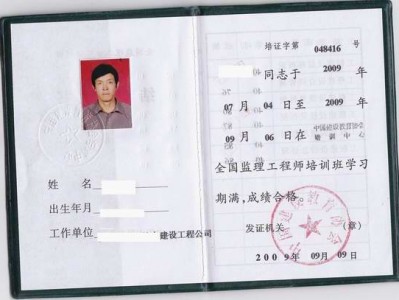 姓 名
出生年月
工作单位 建设工程公司
培证字第 048416 号
同志于 2009 年
07 月 04 日至 2009 年
09 月 06 日在 中国建设教育协会
培训中心
全国监理工程师培训班学习
期满,成绩合格。
发证机关 (章)
2009年09月09日